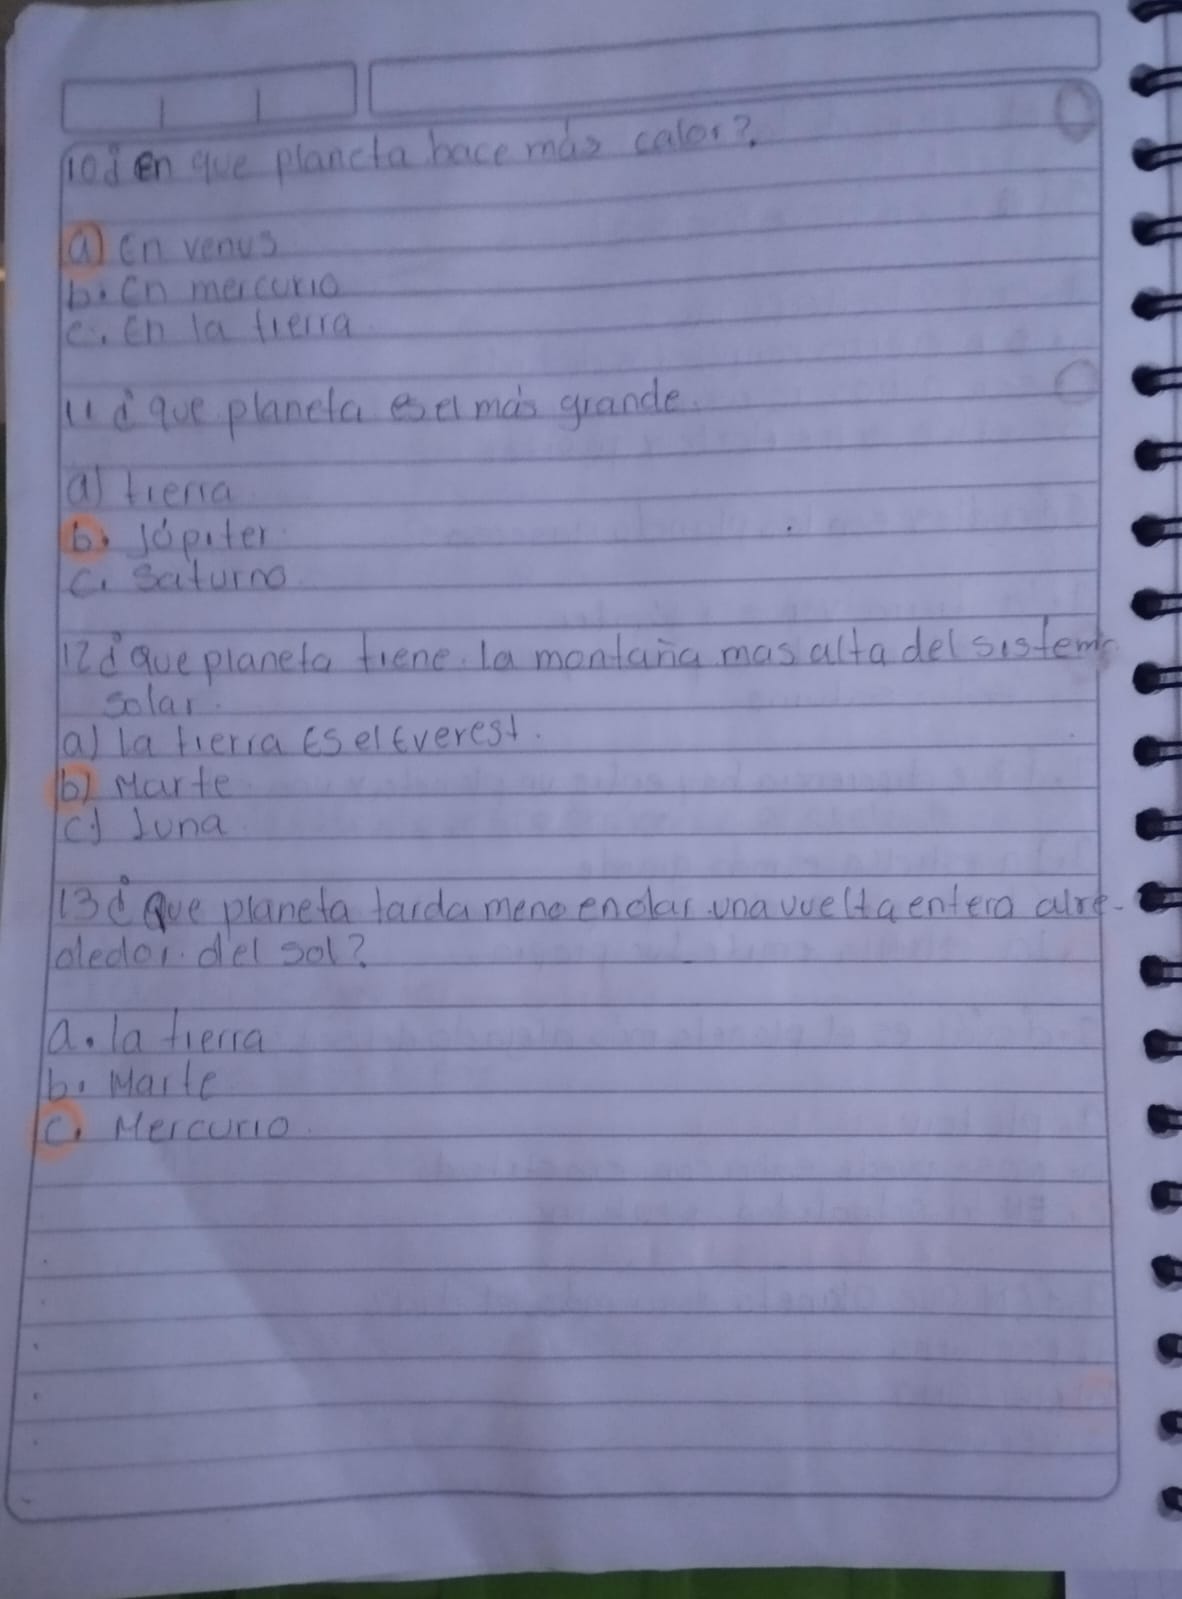 10¿ en que planeta hace más calor?
a) En venus
b. En mercurio
c. En la tierra
11 ¿ que planeta es el más grande
a) tierra
b. Júpiter
c. Saturno
12¿ que planeta tiene la montaña mas alta del sistema
solar.
a) La tierra Es el Everest.
b) Marte
c) Luna
13¿ Que planeta tarda meno en dar una vuelta entera alre-
dedor del sol?
a. la tierra
b. Marte
c. Mercurio